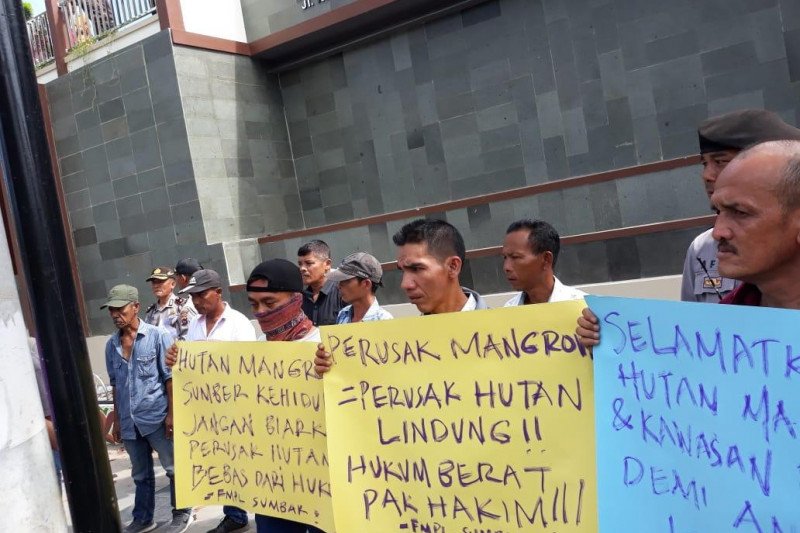 HUTAN MANGRO
SUMBER KEHIDU
JANGAN BIARK
PERUSAK HUTAN
BEBAS DARI HUK
= FMPL SUMBAR =
PERUSAK MANGROV
= PERUSAK HUTAN
LINDUNG !!
HUKUM BERAT
PAK HAKIM !!!
= FMPL SUMB
SELAMATK
HUTAN MA
& KAWASAN
DEMI AN